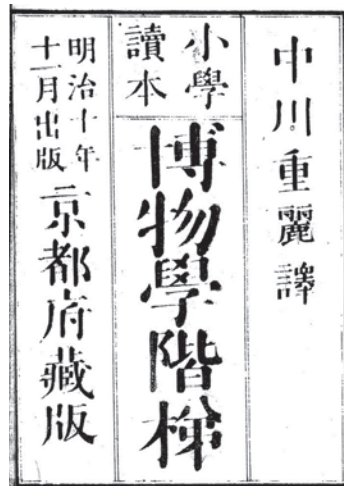 中川重麗譯
小學
讀本
博物學階梯
明治十年
十一月出版
京都府藏版